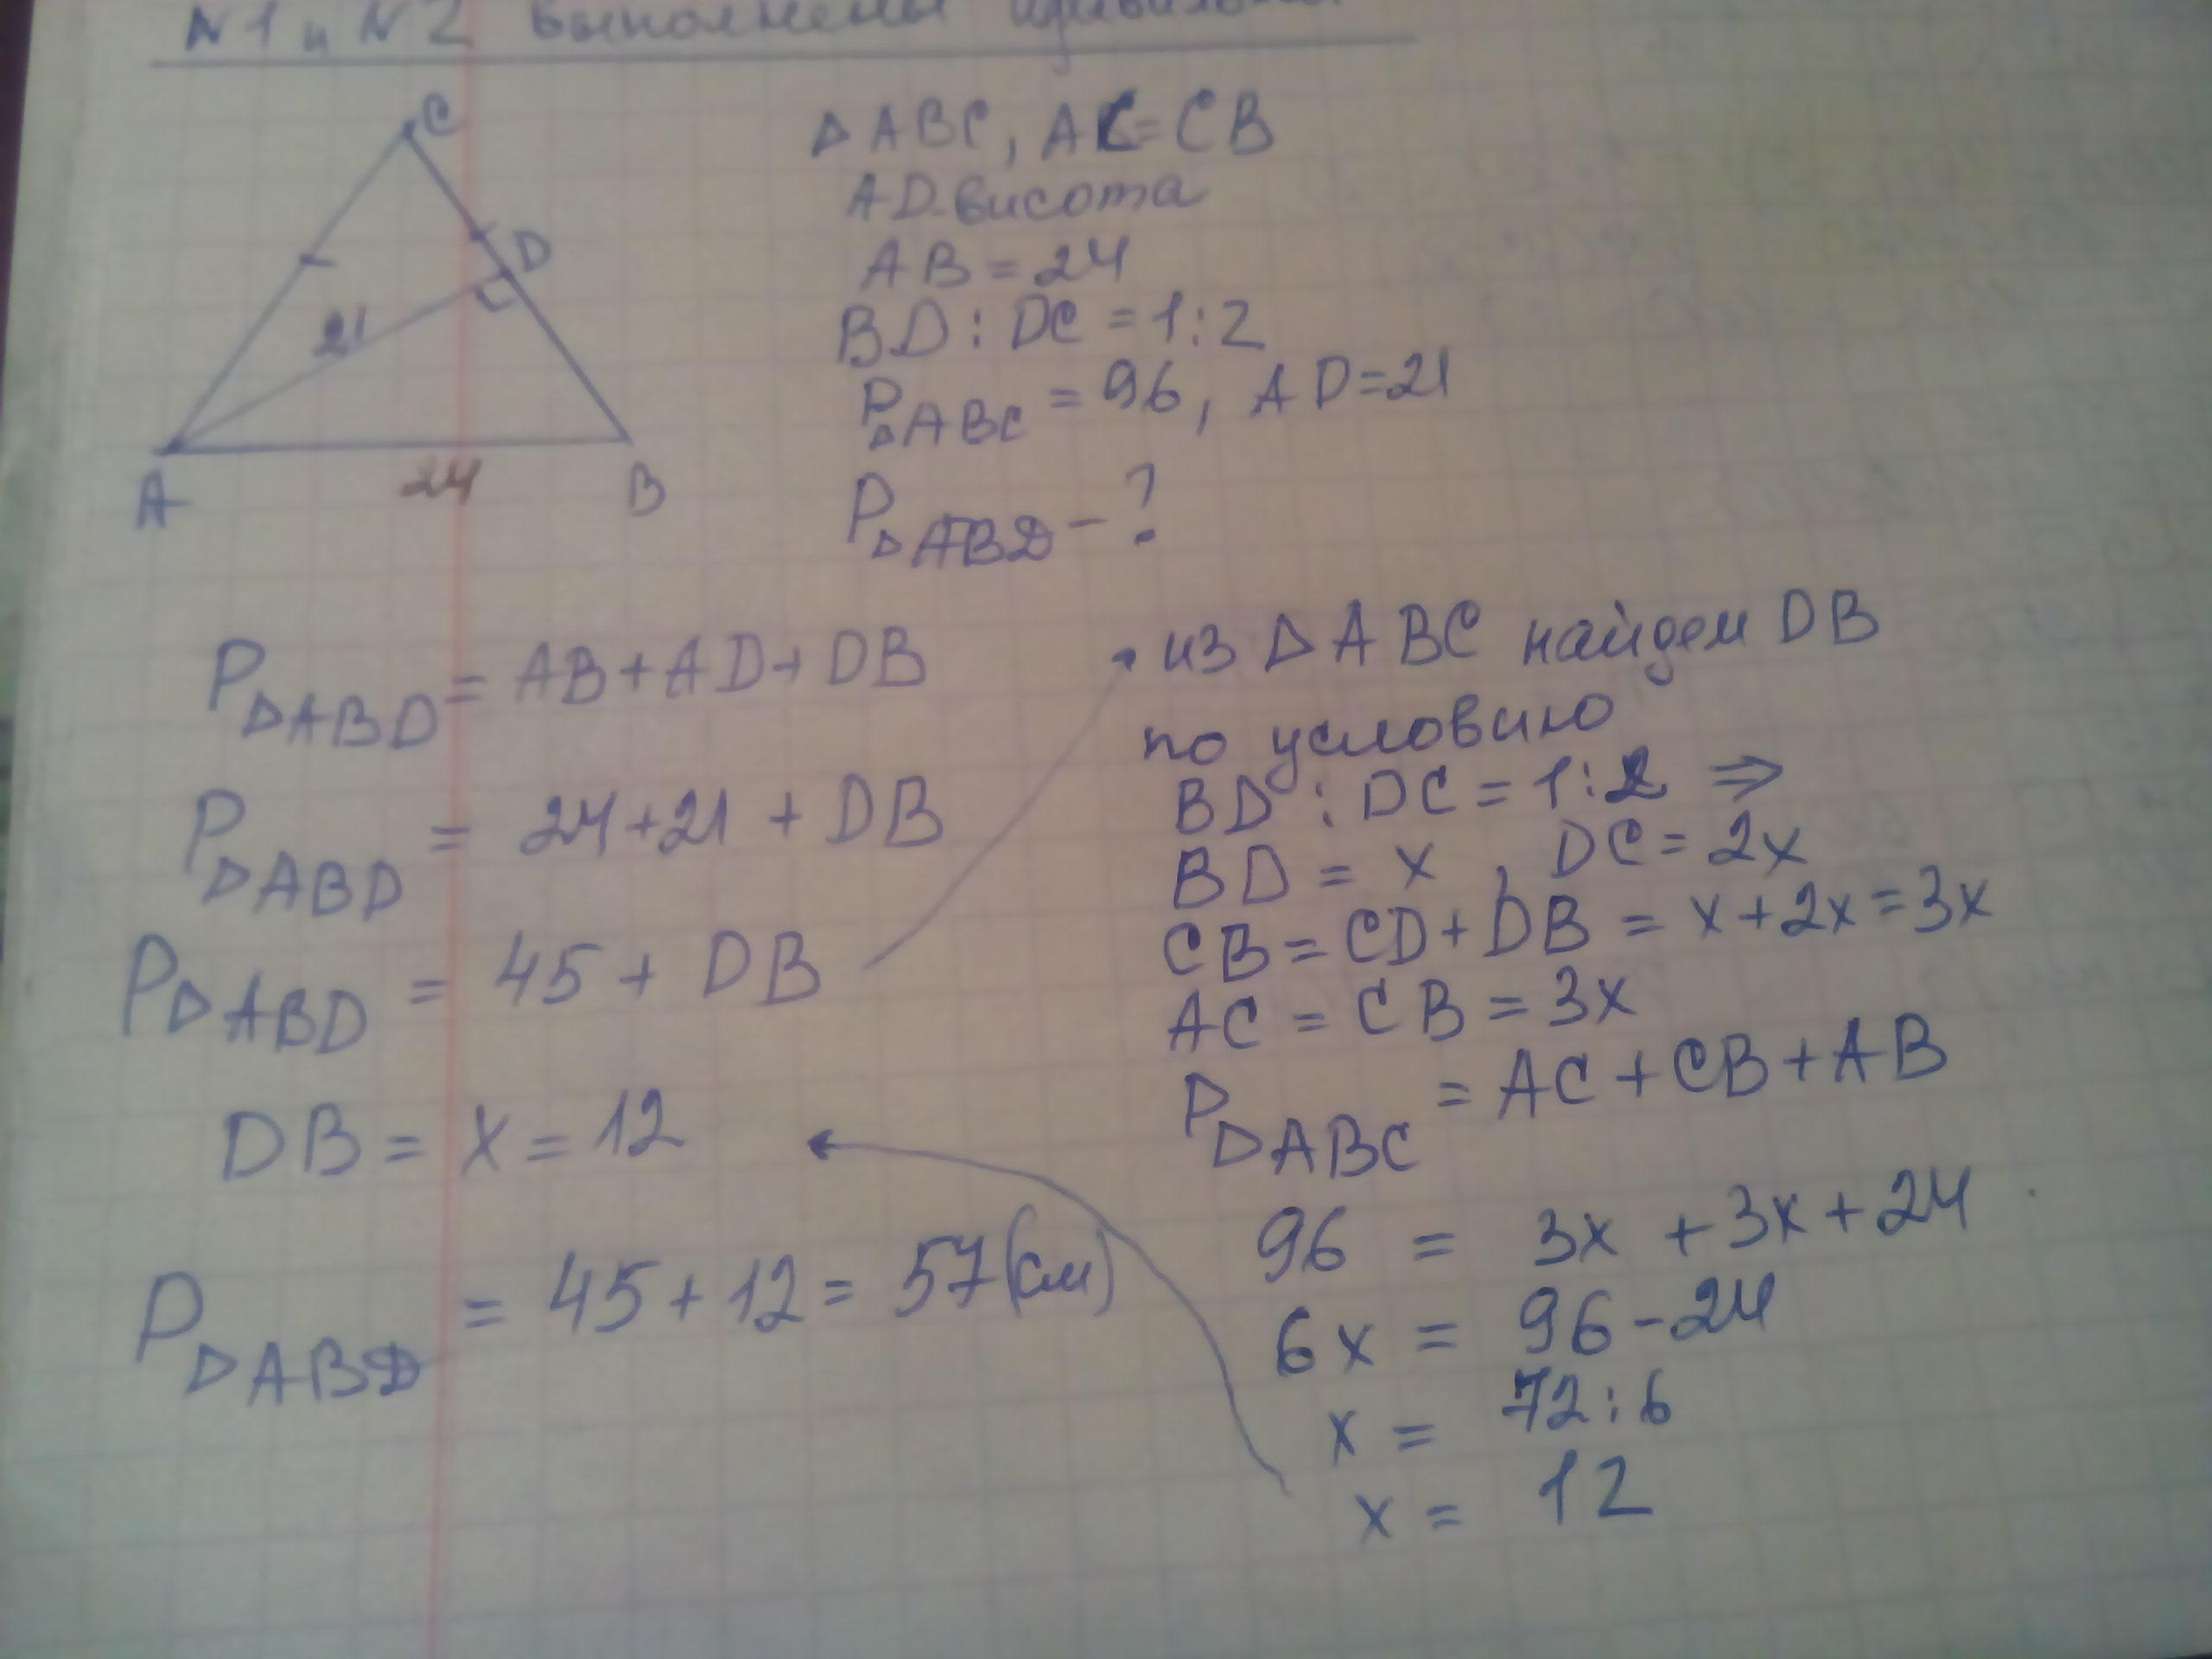 N1 и N2 выполнены
C
D
21
A
24
B
△ABC, AC=CB
AD-висота
AB=24
BD:DC=1:2
P△ABC=96, AD=21
P△ABD-?
P△ABD=AB+AD+DB
P△ABD=24+21+DB
P△ABD=45+DB
DB=x=12
P△ABD=45+12=57(см)
из △ABC найдем DB
по условию
BD:DC=1:2 ⇒
BD=x, DC=2x
CB=CD+DB=x+2x=3x
AC=CB=3x
P△ABC=AC+CB+AB
96=3x+3x+24
6x=96-24
x=72:6
x=12